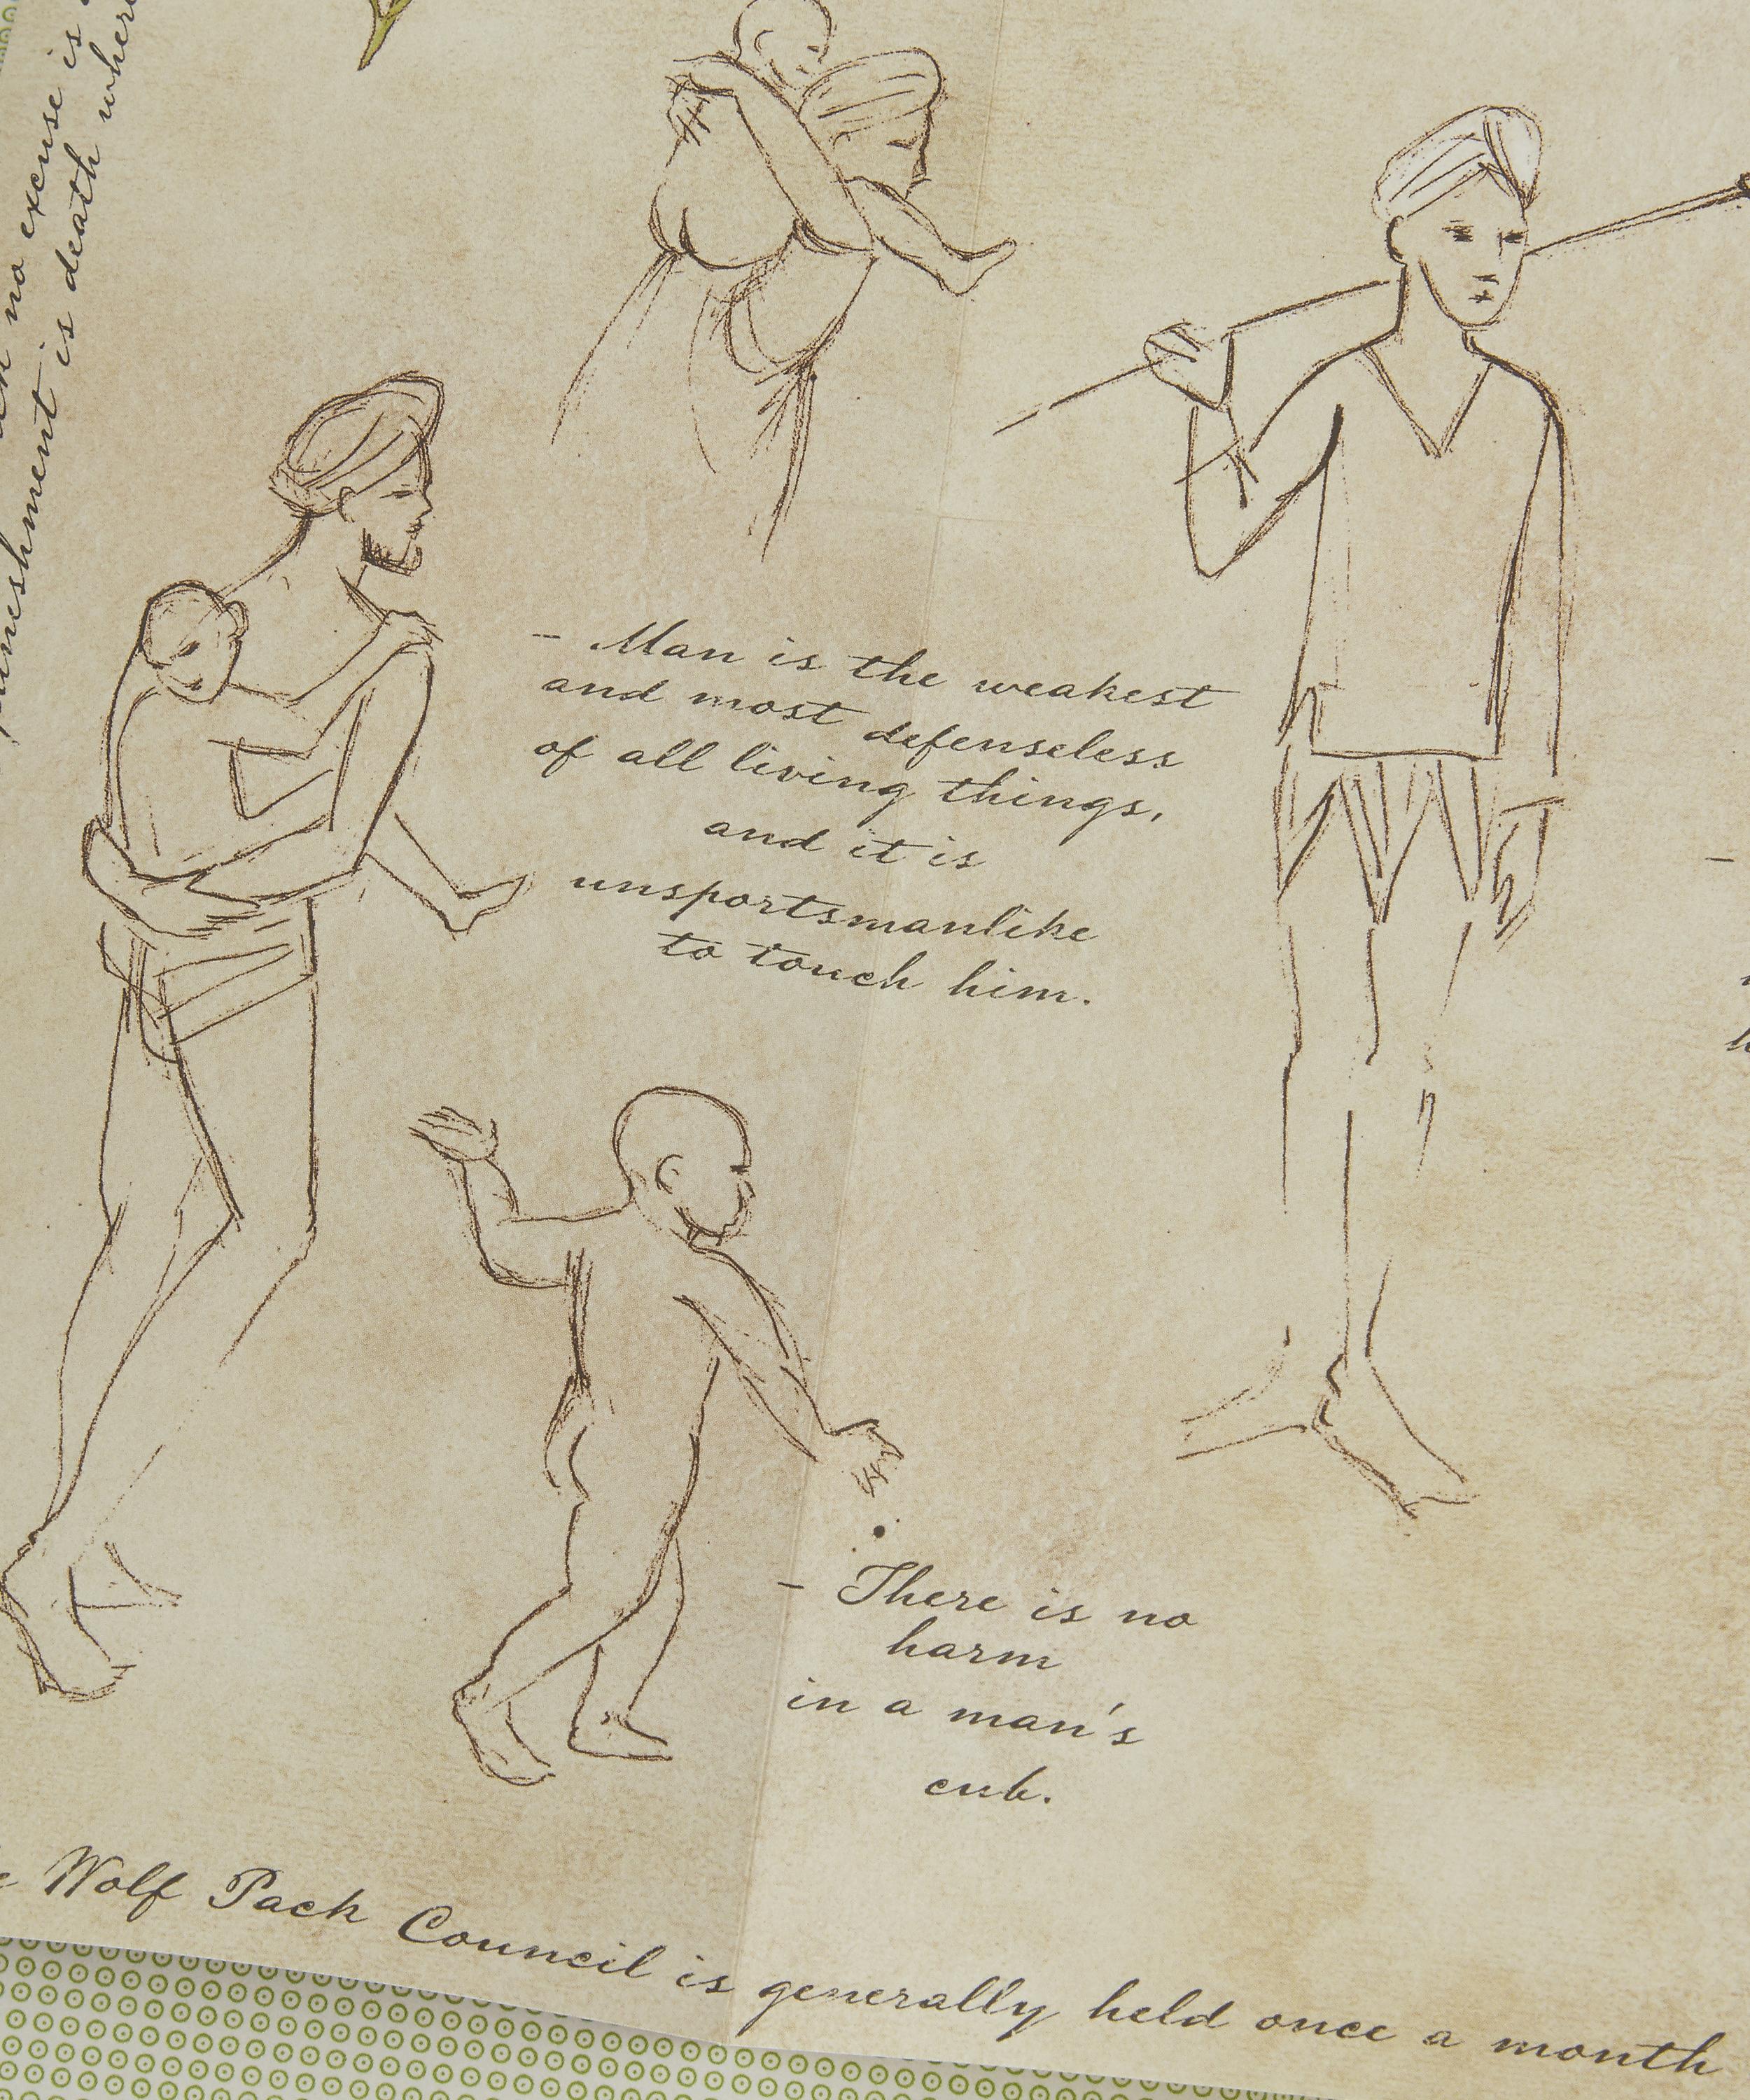 no excuse is
punishment is death where
- Man is the weakest
and most defenseless
of all living things,
and it is
unsportsmanlike
to touch him.
- There is no
harm
in a man's
cub.
Wolf Pack Council is generally held once a month